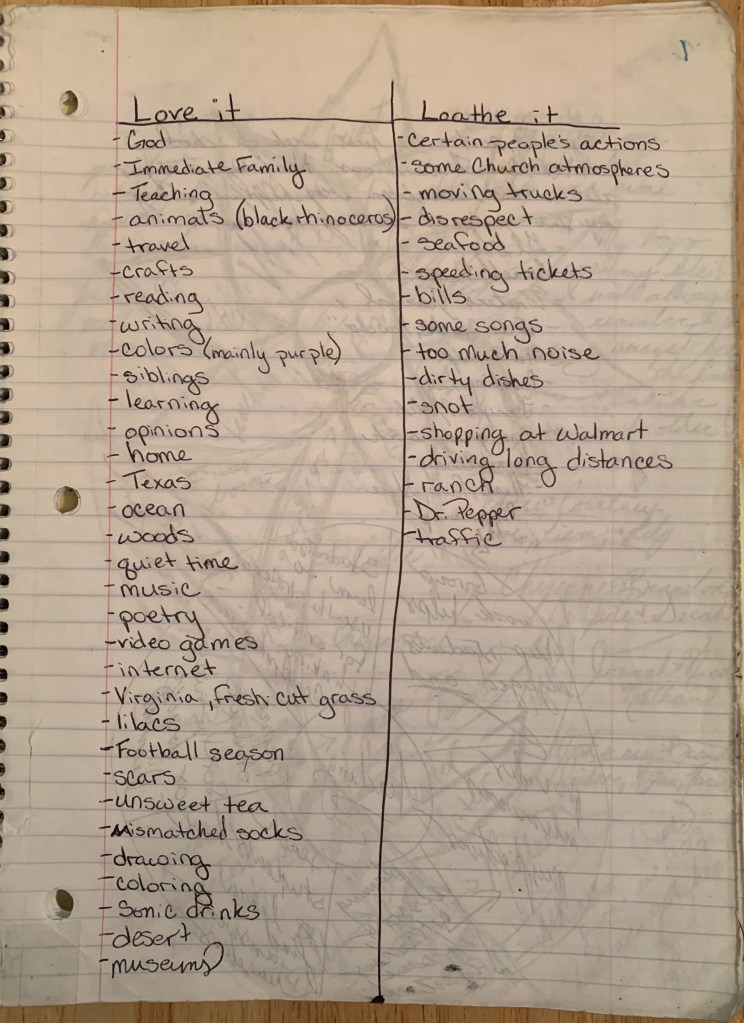 1
Love it
- God
- Immediate Family
- Teaching
- animals (black rhinoceros)
- travel
- crafts
- reading
- writing
- colors (mainly purple)
- siblings
- learning
- opinions
- home
- Texas
- ocean
- woods
- quiet time
- music
- poetry
- video games
- internet
- Virginia, fresh cut grass
- lilacs
- Football season
- scars
- unsweet tea
- Mismatched socks
- drawing
- coloring
- Sonic drinks
- desert
- museums
Loathe it
- certain people's actions
- some Church atmospheres
- moving trucks
- disrespect
- seafood
- speeding tickets
- bills
- some songs
- too much noise
- dirty dishes
- snot
- shopping at Walmart
- driving long distances
- ranch
- Dr. Pepper
- traffic